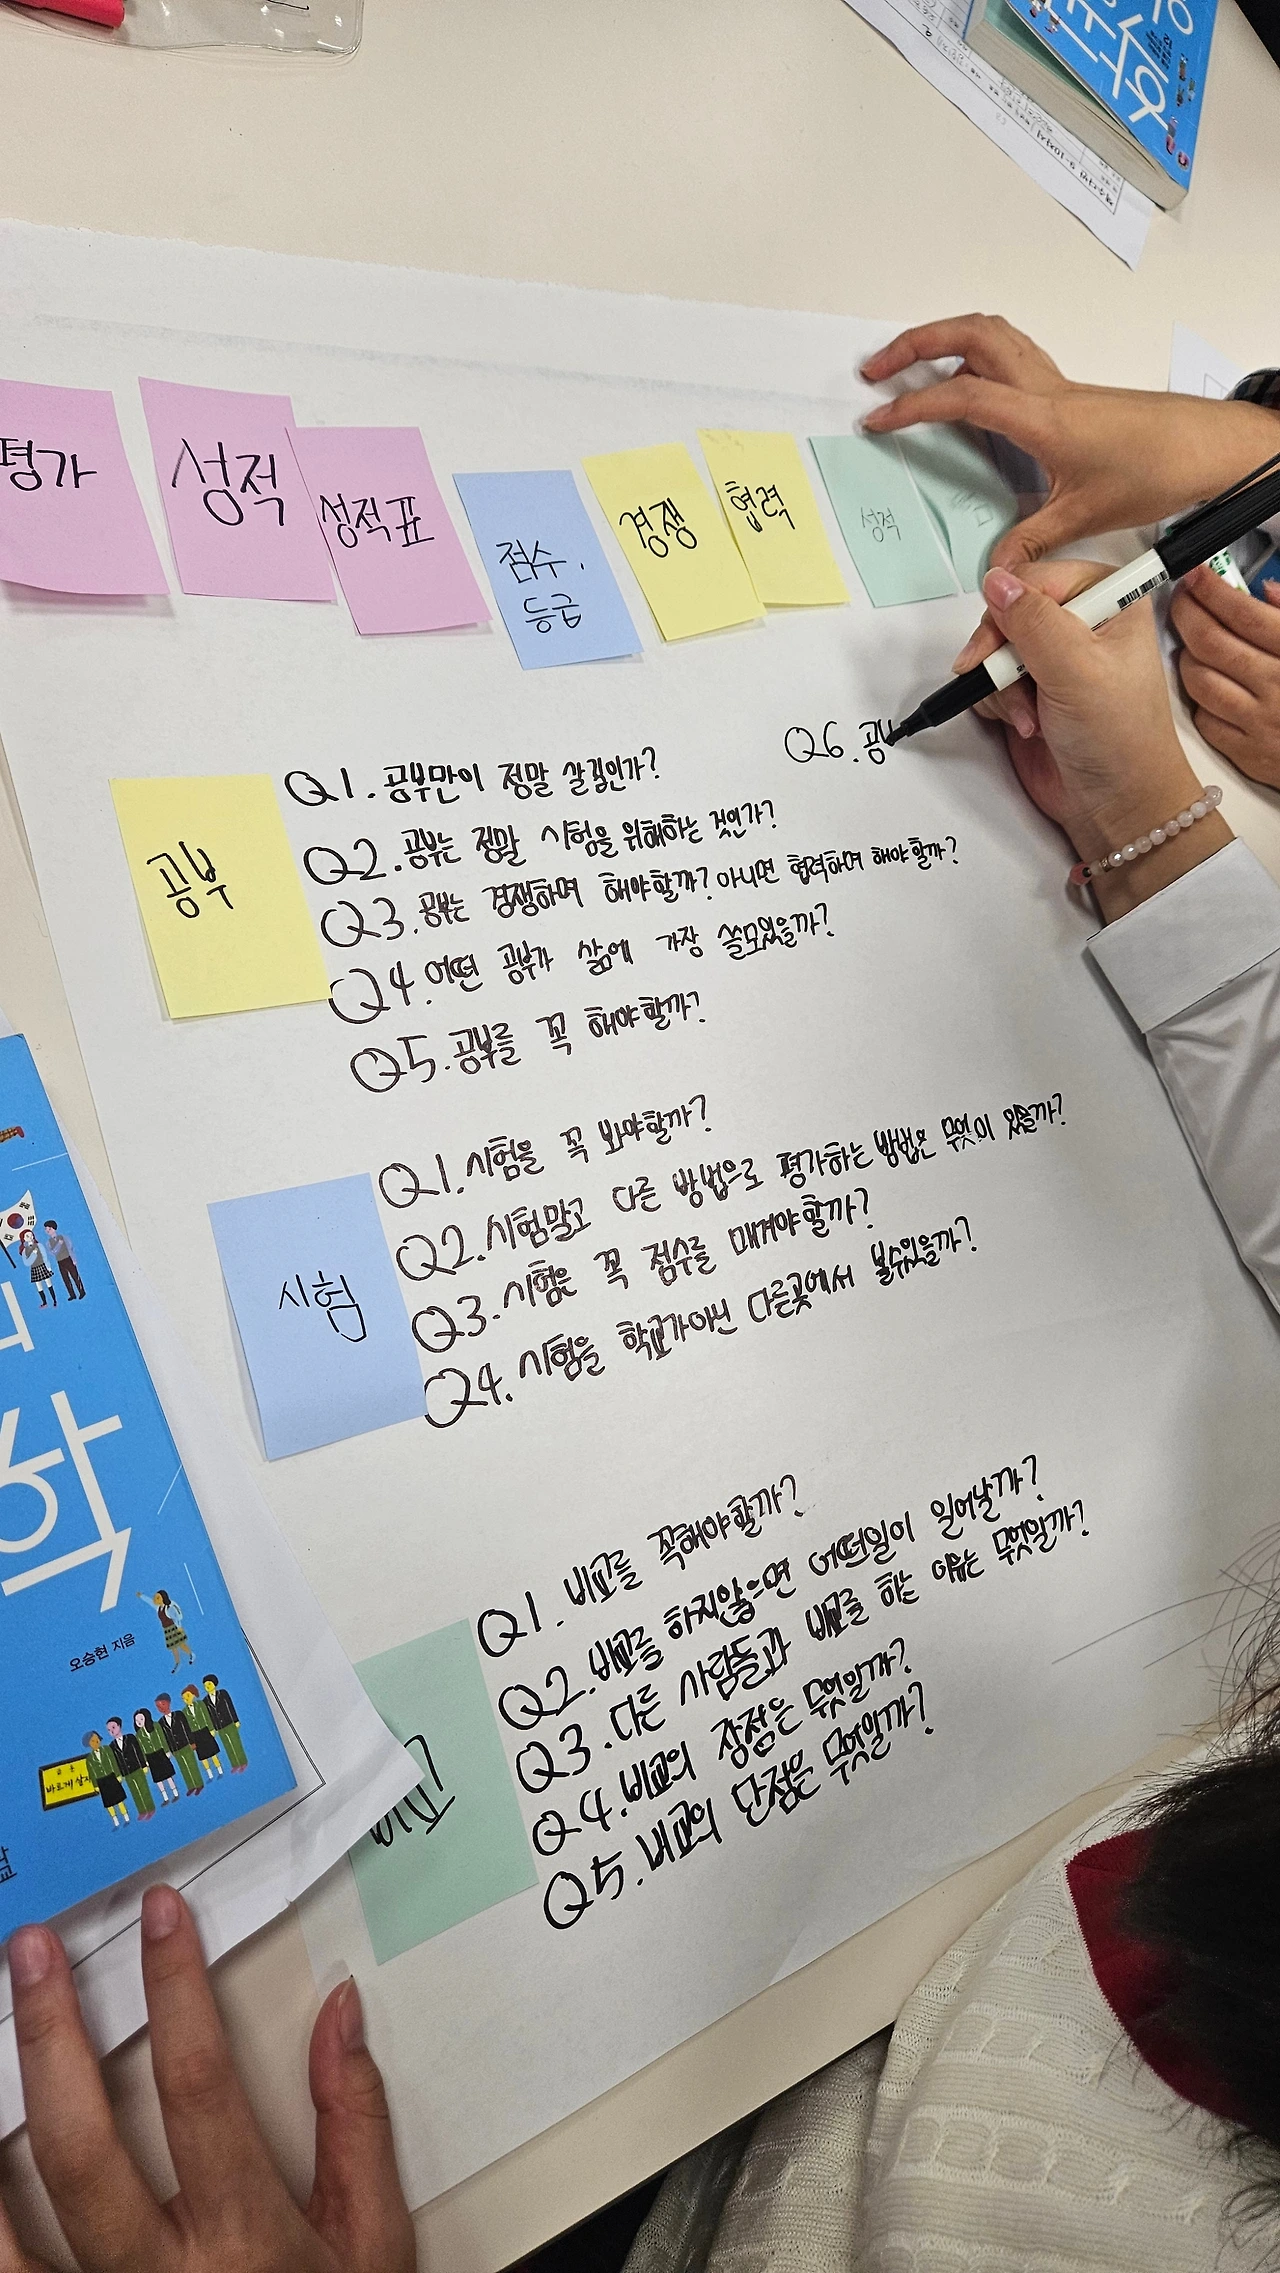 평가
성적
성적표
점수,
등급
경쟁
협력
성적
공부
Q1. 공부만이 정말 살길인가?
Q2. 공부는 정말 시험을 위해하는 것인가?
Q3. 공부는 경쟁하며 해야할까? 아니면 협력하며 해야할까?
Q4. 어떤 공부가 삶에 가장 쓸모있을까?
Q5. 공부를 꼭 해야할까?
Q6. 공부
시험
Q1. 시험을 꼭 봐야할까?
Q2. 시험말고 다른 방법으로 평가하는 방법은 무엇이 있을까?
Q3. 시험은 꼭 점수를 매겨야할까?
Q4. 시험을 학교가아닌 다른곳에서 볼수있을까?
비교
Q1. 비교를 꼭해야할까?
Q2. 비교를 하지않으면 어떠일이 일어날까?
Q3. 다른 사람들과 비교를 하는 이유는 무엇일까?
Q4. 비교의 장점은 무엇일까?
Q5. 비교의 단점은 무엇일까?
학
오승현 지음
바르게 살자